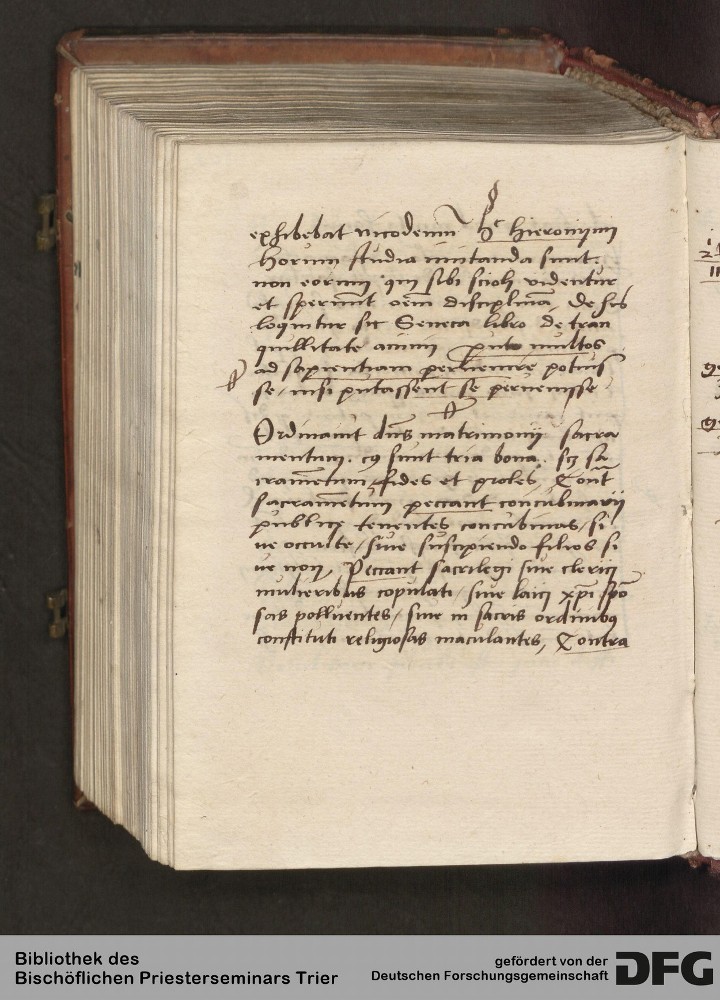 exhibebat nicodemū hc Hieronijmi
Horum studia imitanda sunt:
non eorum qui sibi scioli videntur
et spernūt oēm disciplinā, De his
loquitur sic Seneca libro de tran
quillitate animi puto multos
ad sapientiam pervenire potuis
se, nisi putassent se pervenisse
Ordinauit dūs matrimonij sacra
mentum. sunt tria bona.
cramētum, fides et proles, Cont
sacramētum peccant concubinarij
publice tenentes concubinas, si
ue occulte, siue suscipiendo filios si
ue non, Peccant sacrilegi siue clerici
mulieribus copulati, siue laici xpi spō
sas polluentes, siue in sacris ordinibus
constituti religiosas maculantes, Contra
Bibliothek des
Bischöflichen Priesterseminars Trier
gefördert von der
Deutschen Forschungsgemeinschaft DFG